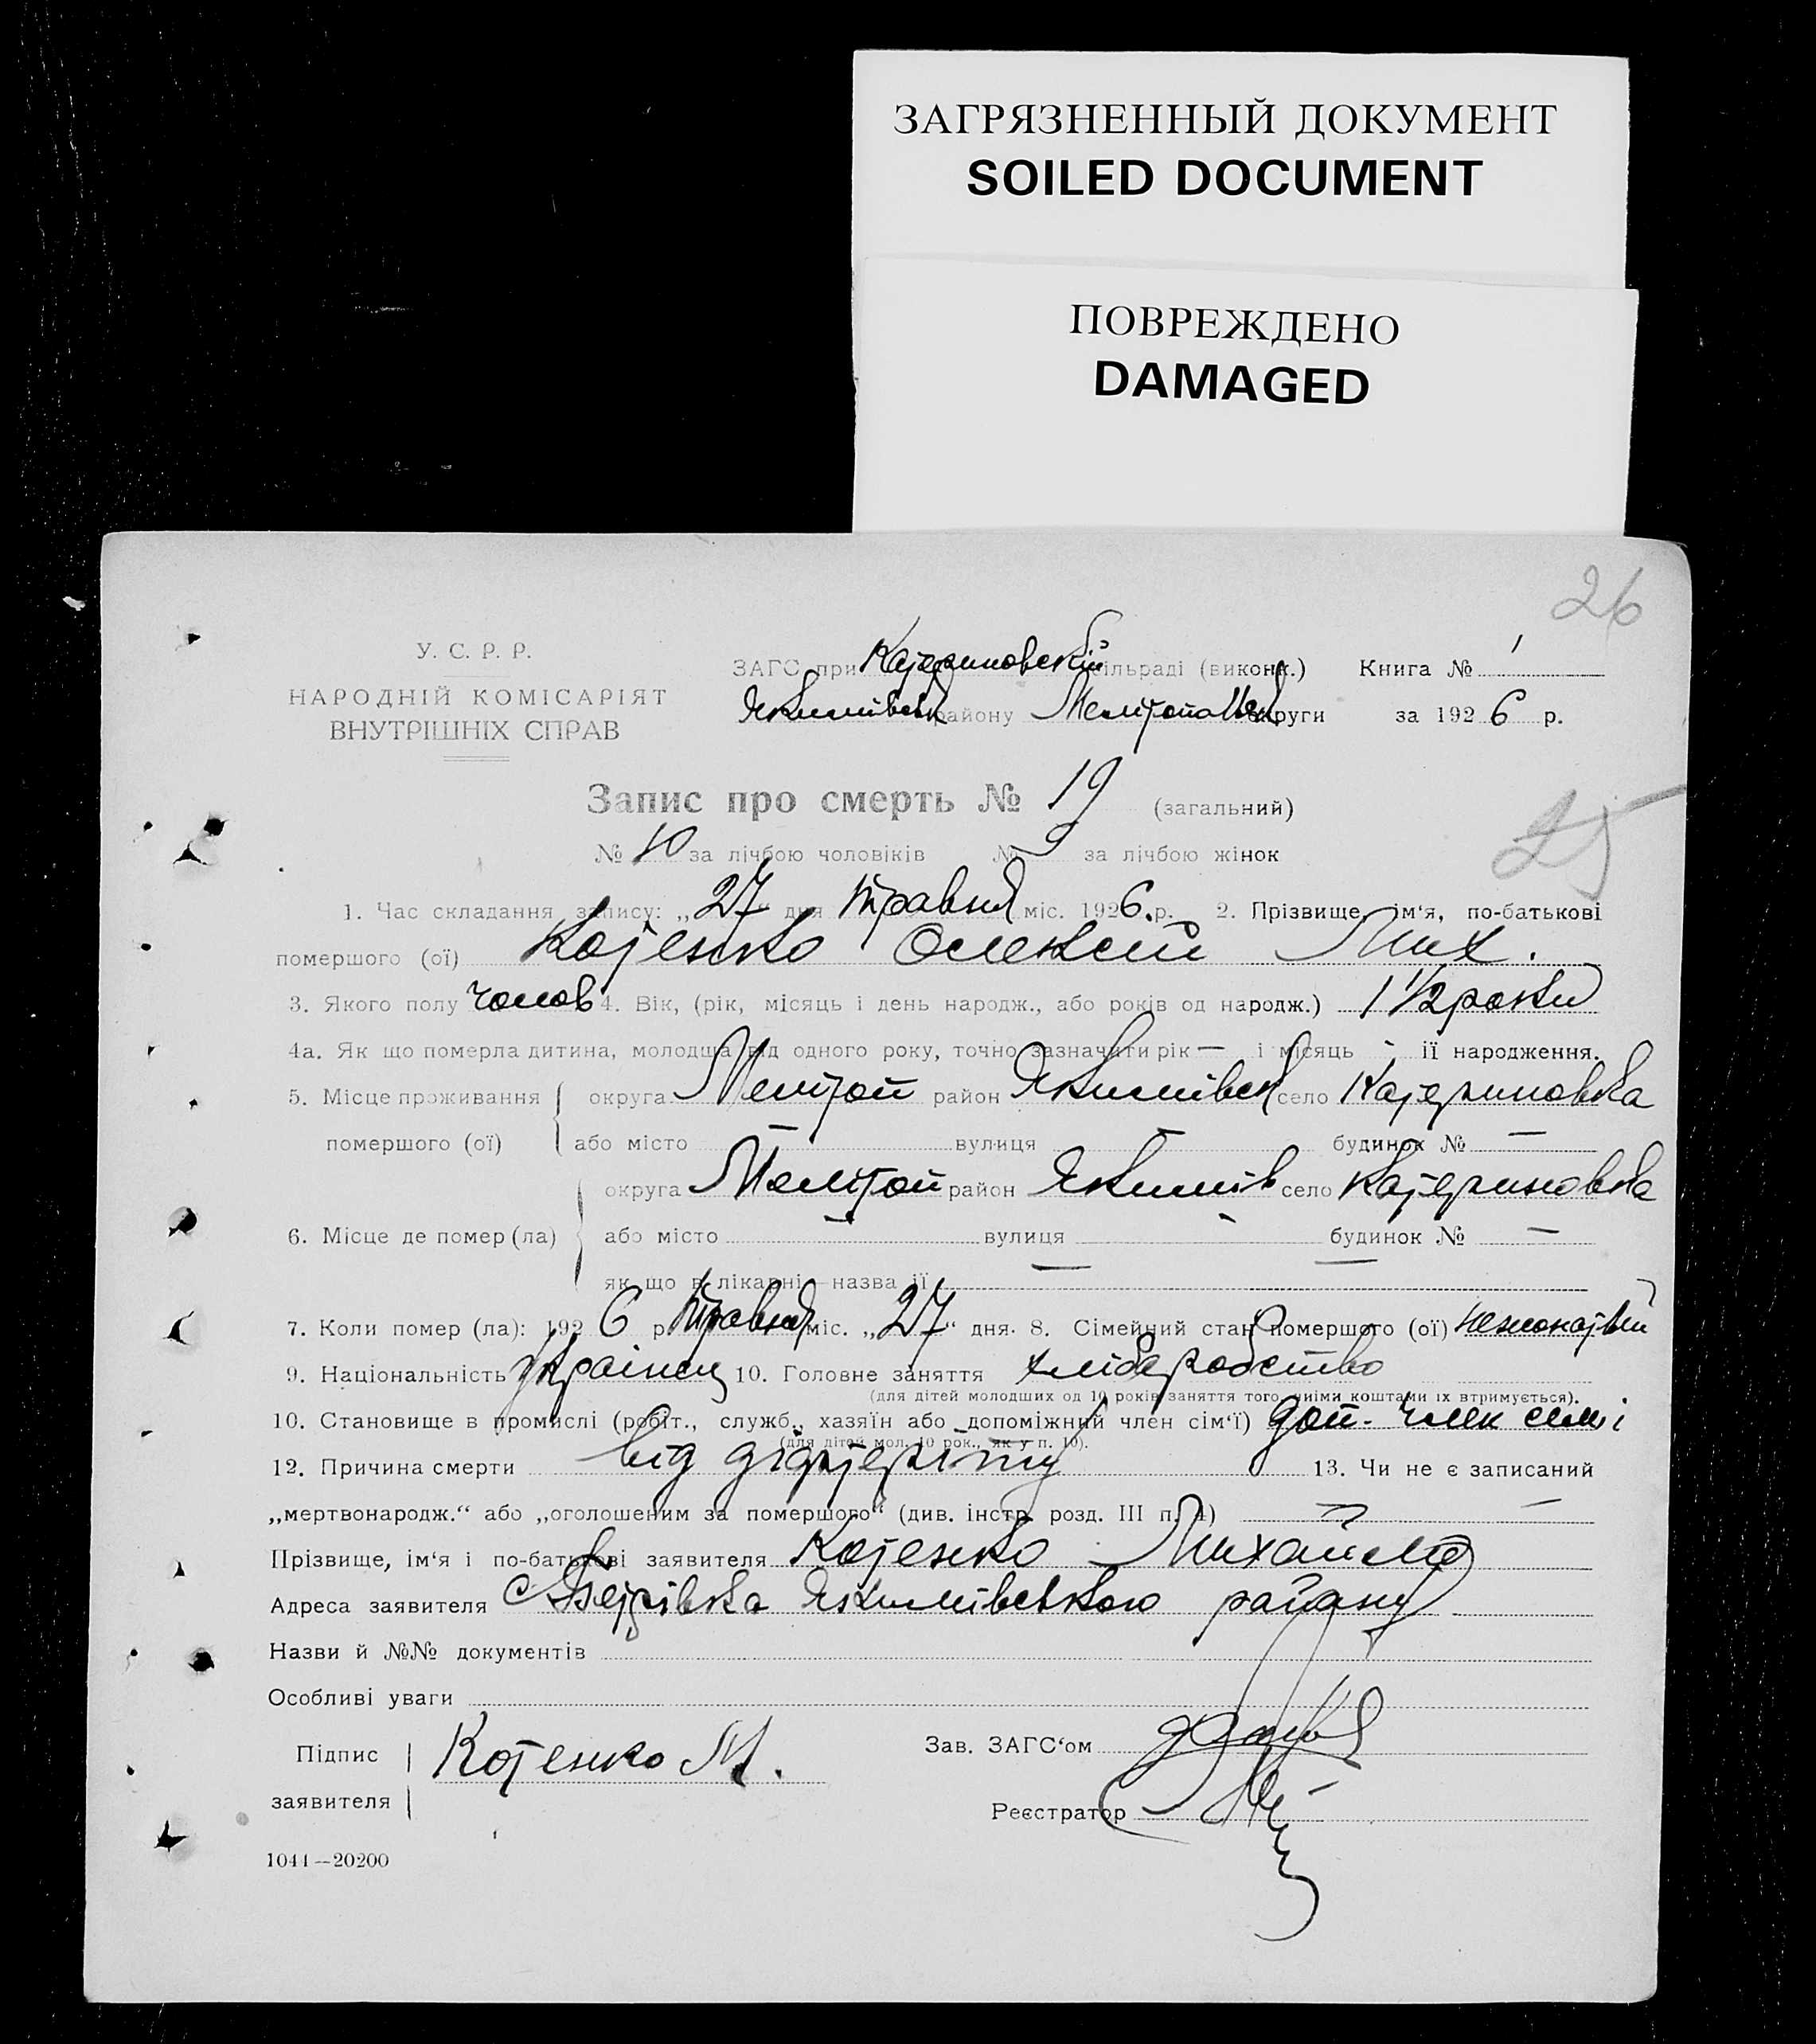 ЗАГРЯЗНЕННЫЙ ДОКУМЕНТ
SOILED DOCUMENT
ПОВРЕЖДЕНО
DAMAGED
26
У. С. Р. Р.
НАРОДНІЙ КОМІСАРІЯТ
ВНУТРІШНІХ СПРАВ
ЗАГС при Катериновській сільраді (виконк.) Книга № 1
Якимівськ району Мелітопольськ округи за 1926 р.
Запис про смерть № 19 (загальний)
25
№ 10 за лічбою чоловіків № 9 за лічбою жінок
1. Час складання запису: „27“ дня травня міс. 1926. р. 2. Прізвище, ім‘я, по-батькові
помершого (ої) Котенко Олексій Мих.
3. Якого полу чолов 4. Вік, (рік, місяць і день народж., або років од народж.) 1 1/2 роки
4а. Як що померла дитина, молодша від одного року, точно зазначити рік — і місяць - її народження.
5. Місце проживання округа Мелітоп район Якимівськ село Катериновка
помершого (ої) або місто — вулиця — будинок № —
округа Мелітоп район Якимів село Катериновка
6. Місце де помер (ла) або місто - вулиця - будинок № —
як що в лікарні—назва її — —
7. Коли помер (ла): 1926 р. травня міс. „27“ дня. 8. Сімейний стан помершого (ої) нежонатий
9. Національність українец 10. Головне заняття хліборобство
(для дітей молодших од 10 років заняття того, чиїми коштами їх втримується).
10. Становище в промислі (робіт., служб., хазяїн або допоміжний член сім‘ї) доп. член семі
(для дітей мол. 10 рок., як у п. 10).
12. Причина смерти від діфтеріту 13. Чи не є записаний
„мертвонародж.“ або „оголошеним за помершого“ (див. інстр. розд. III п. 4) — —
Прізвище, ім‘я і по-батькові заявителя Котенко Михайло
Адреса заявителя с Якимівського району
Назви й №№ документів
Особливі уваги
Підпис заявителя Котенко М.
Зав. ЗАГС‘ом
Реєстратор
1044—20200